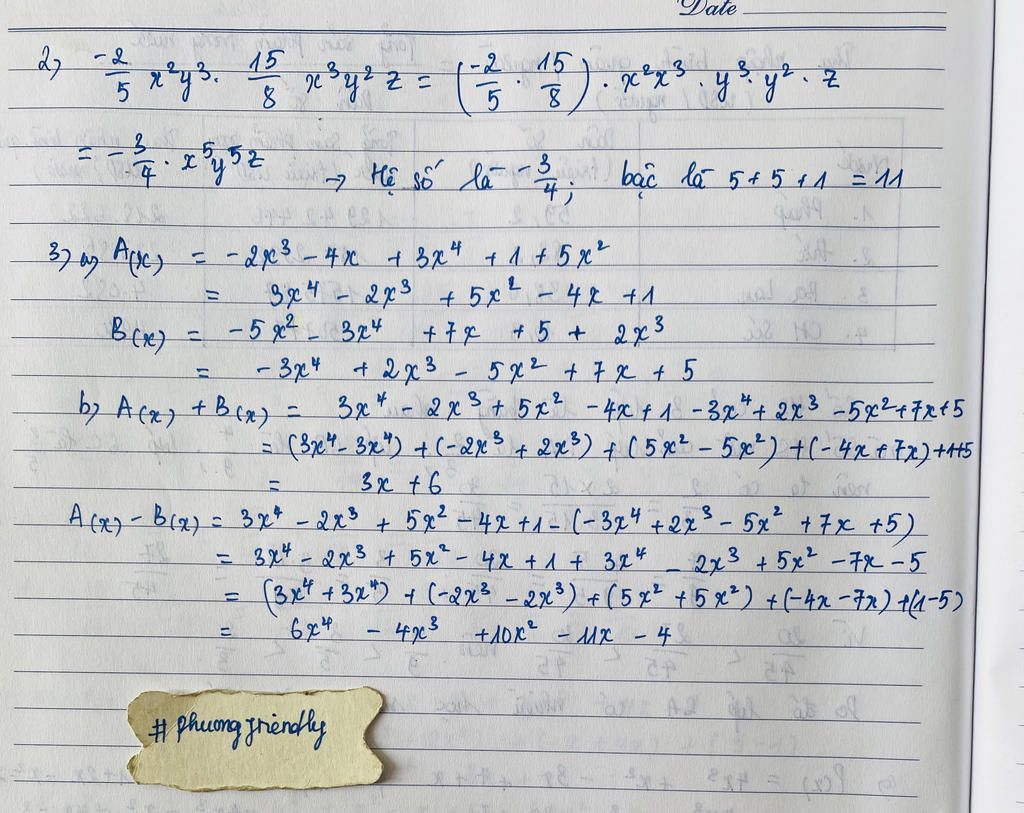 Date
2, -2/5 x²y³ · 15/8 x³y² z = (-2/5 · 15/8) · x²x³ · y³ · y² · z
= -3/4 · x⁵y⁵z → Hệ số là -3/4; bậc là 5+5+1 = 11
3, a, A(x) = -2x³ - 4x + 3x⁴ + 1 + 5x²
= 3x⁴ - 2x³ + 5x² - 4x + 1
B(x) = -5x² - 3x⁴ + 7x + 5 + 2x³
= -3x⁴ + 2x³ - 5x² + 7x + 5
b, A(x) + B(x) = 3x⁴ - 2x³ + 5x² - 4x + 1 - 3x⁴ + 2x³ - 5x² + 7x + 5
= (3x⁴ - 3x⁴) + (-2x³ + 2x³) + (5x² - 5x²) + (-4x + 7x) + 1+5
= 3x + 6
A(x) - B(x) = 3x⁴ - 2x³ + 5x² - 4x + 1 - (-3x⁴ + 2x³ - 5x² + 7x + 5)
= 3x⁴ - 2x³ + 5x² - 4x + 1 + 3x⁴ - 2x³ + 5x² - 7x - 5
= (3x⁴ + 3x⁴) + (-2x³ - 2x³) + (5x² + 5x²) + (-4x - 7x) + (1-5)
= 6x⁴ - 4x³ + 10x² - 11x - 4
# phuongfriendly